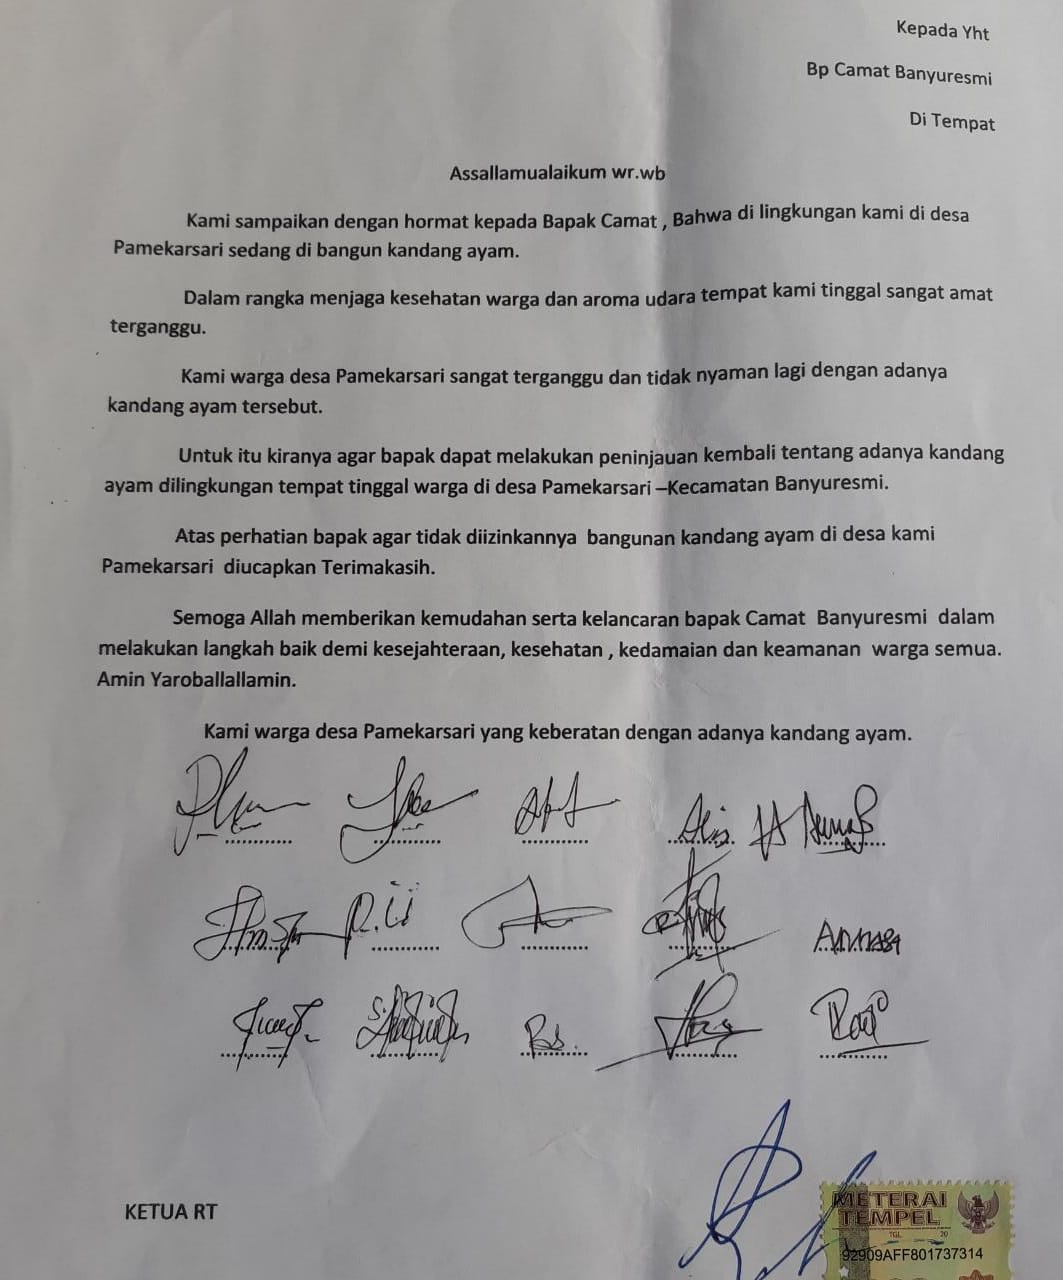 Kepada Yht
Bp Camat Banyuresmi
Di Tempat
Assallamualaikum wr.wb
Kami sampaikan dengan hormat kepada Bapak Camat , Bahwa di lingkungan kami di desa
Pamekarsari sedang di bangun kandang ayam.
Dalam rangka menjaga kesehatan warga dan aroma udara tempat kami tinggal sangat amat
terganggu.
Kami warga desa Pamekarsari sangat terganggu dan tidak nyaman lagi dengan adanya
kandang ayam tersebut.
Untuk itu kiranya agar bapak dapat melakukan peninjauan kembali tentang adanya kandang
ayam dilingkungan tempat tinggal warga di desa Pamekarsari –Kecamatan Banyuresmi.
Atas perhatian bapak agar tidak diizinkannya bangunan kandang ayam di desa kami
Pamekarsari diucapkan Terimakasih.
Semoga Allah memberikan kemudahan serta kelancaran bapak Camat Banyuresmi dalam
melakukan langkah baik demi kesejahteraan, kesehatan , kedamaian dan keamanan warga semua.
Amin Yaroballallamin.
Kami warga desa Pamekarsari yang keberatan dengan adanya kandang ayam.
KETUA RT
METERAI
TEMPEL
TGL 20
92909AFF801737314